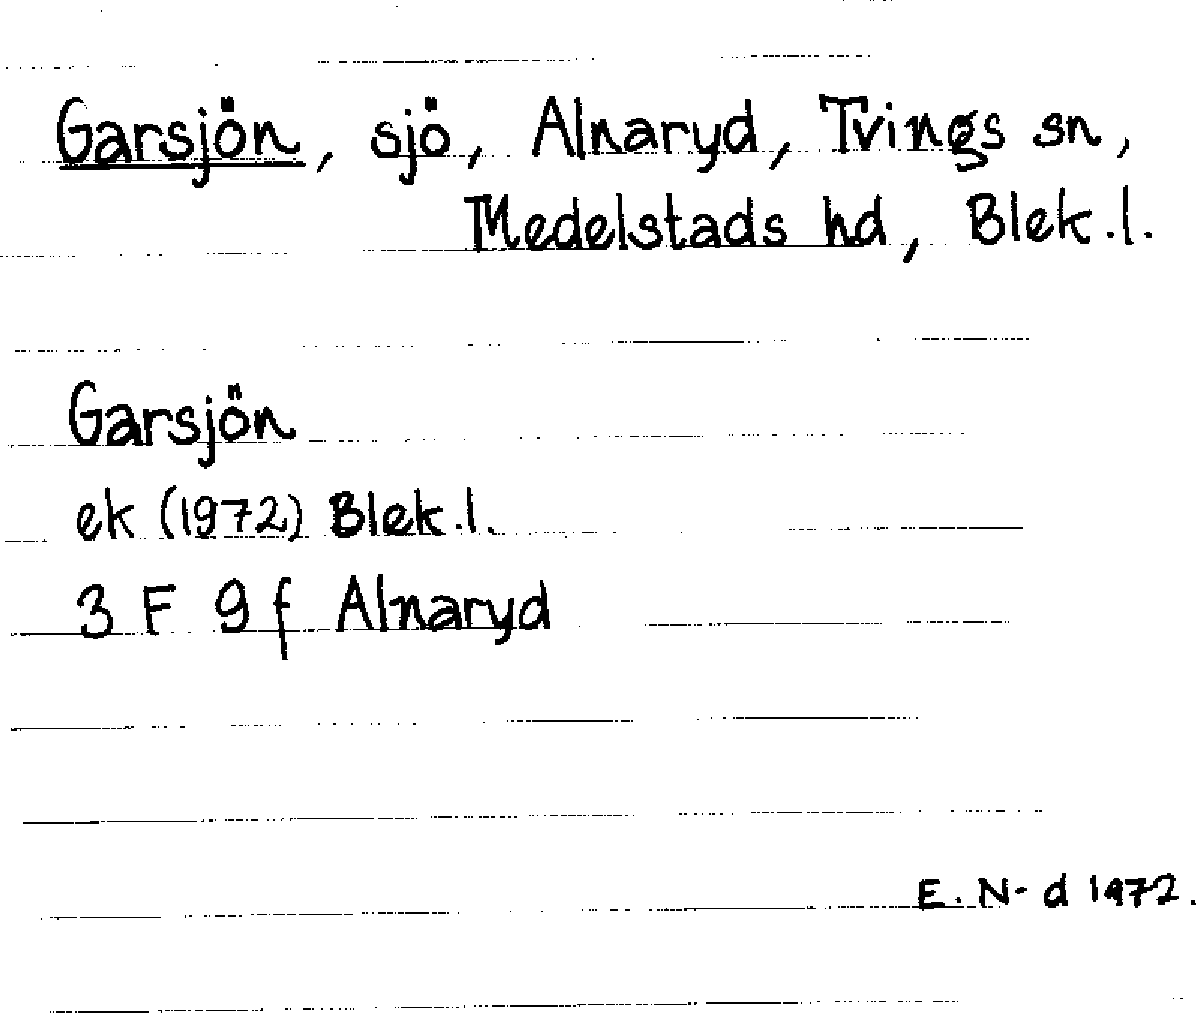 Garsjön, sjö, Alnaryd, Tvings sn,
Medelstads hd, Blek.l.
Garsjön
ek (1972) Blek.l.
3 F 9 f Alnaryd
E. N-d 1972.